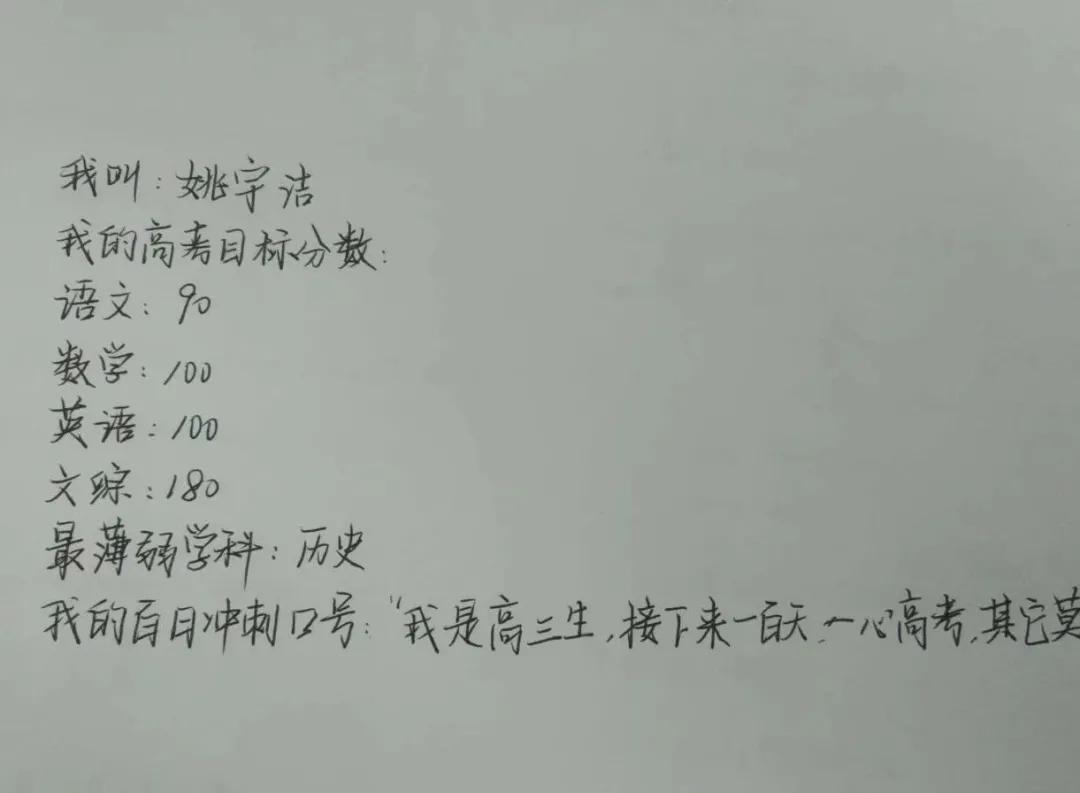 我叫：姚宇洁
我的高考目标分数：
语文：90
数学：100
英语：100
文综：180
最薄弱学科：历史
我的百日冲刺口号：“我是高三生，接下来一百天，一心高考，其它莫